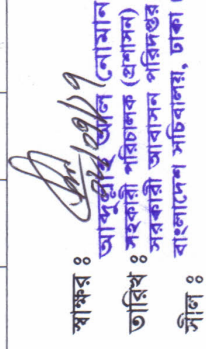 স্বাক্ষর ঃ
আব্দুল্লাহ আল নোমান
তারিখ ঃ সহকারী পরিচালক (প্রশাসন)
সরকারী আবাসন পরিদপ্তর
সীল ঃ বাংলাদেশ সচিবালয়, ঢাকা।